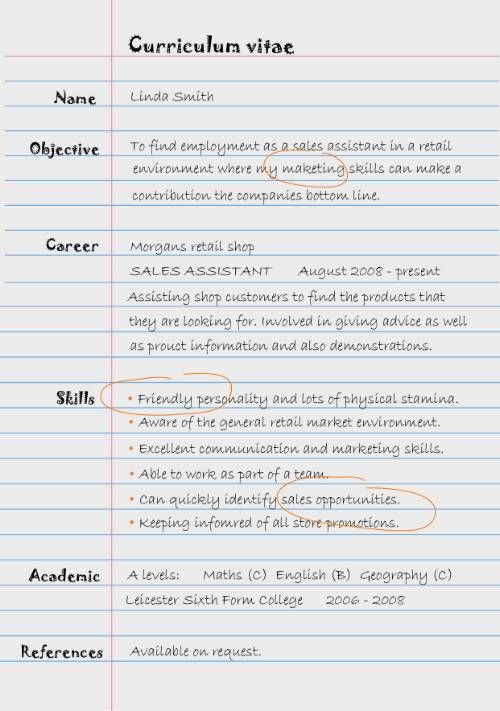 Curriculum vitae
Name Linda Smith
Objective To find employment as a sales assistant in a retail
environment where my maketing skills can make a
contribution the companies bottom line.
Career Morgans retail shop
SALES ASSISTANT August 2008 - present
Assisting shop customers to find the products that
they are looking for. Involved in giving advice as well
as prouct information and also demonstrations.
Skills • Friendly personality and lots of physical stamina.
• Aware of the general retail market environment.
• Excellent communication and marketing skills.
• Able to work as part of a team.
• Can quickly identify sales opportunities.
• Keeping infomred of all store promotions.
Academic A levels: Maths (C) English (B) Geography (C)
Leicester Sixth Form College 2006 - 2008
References Available on request.